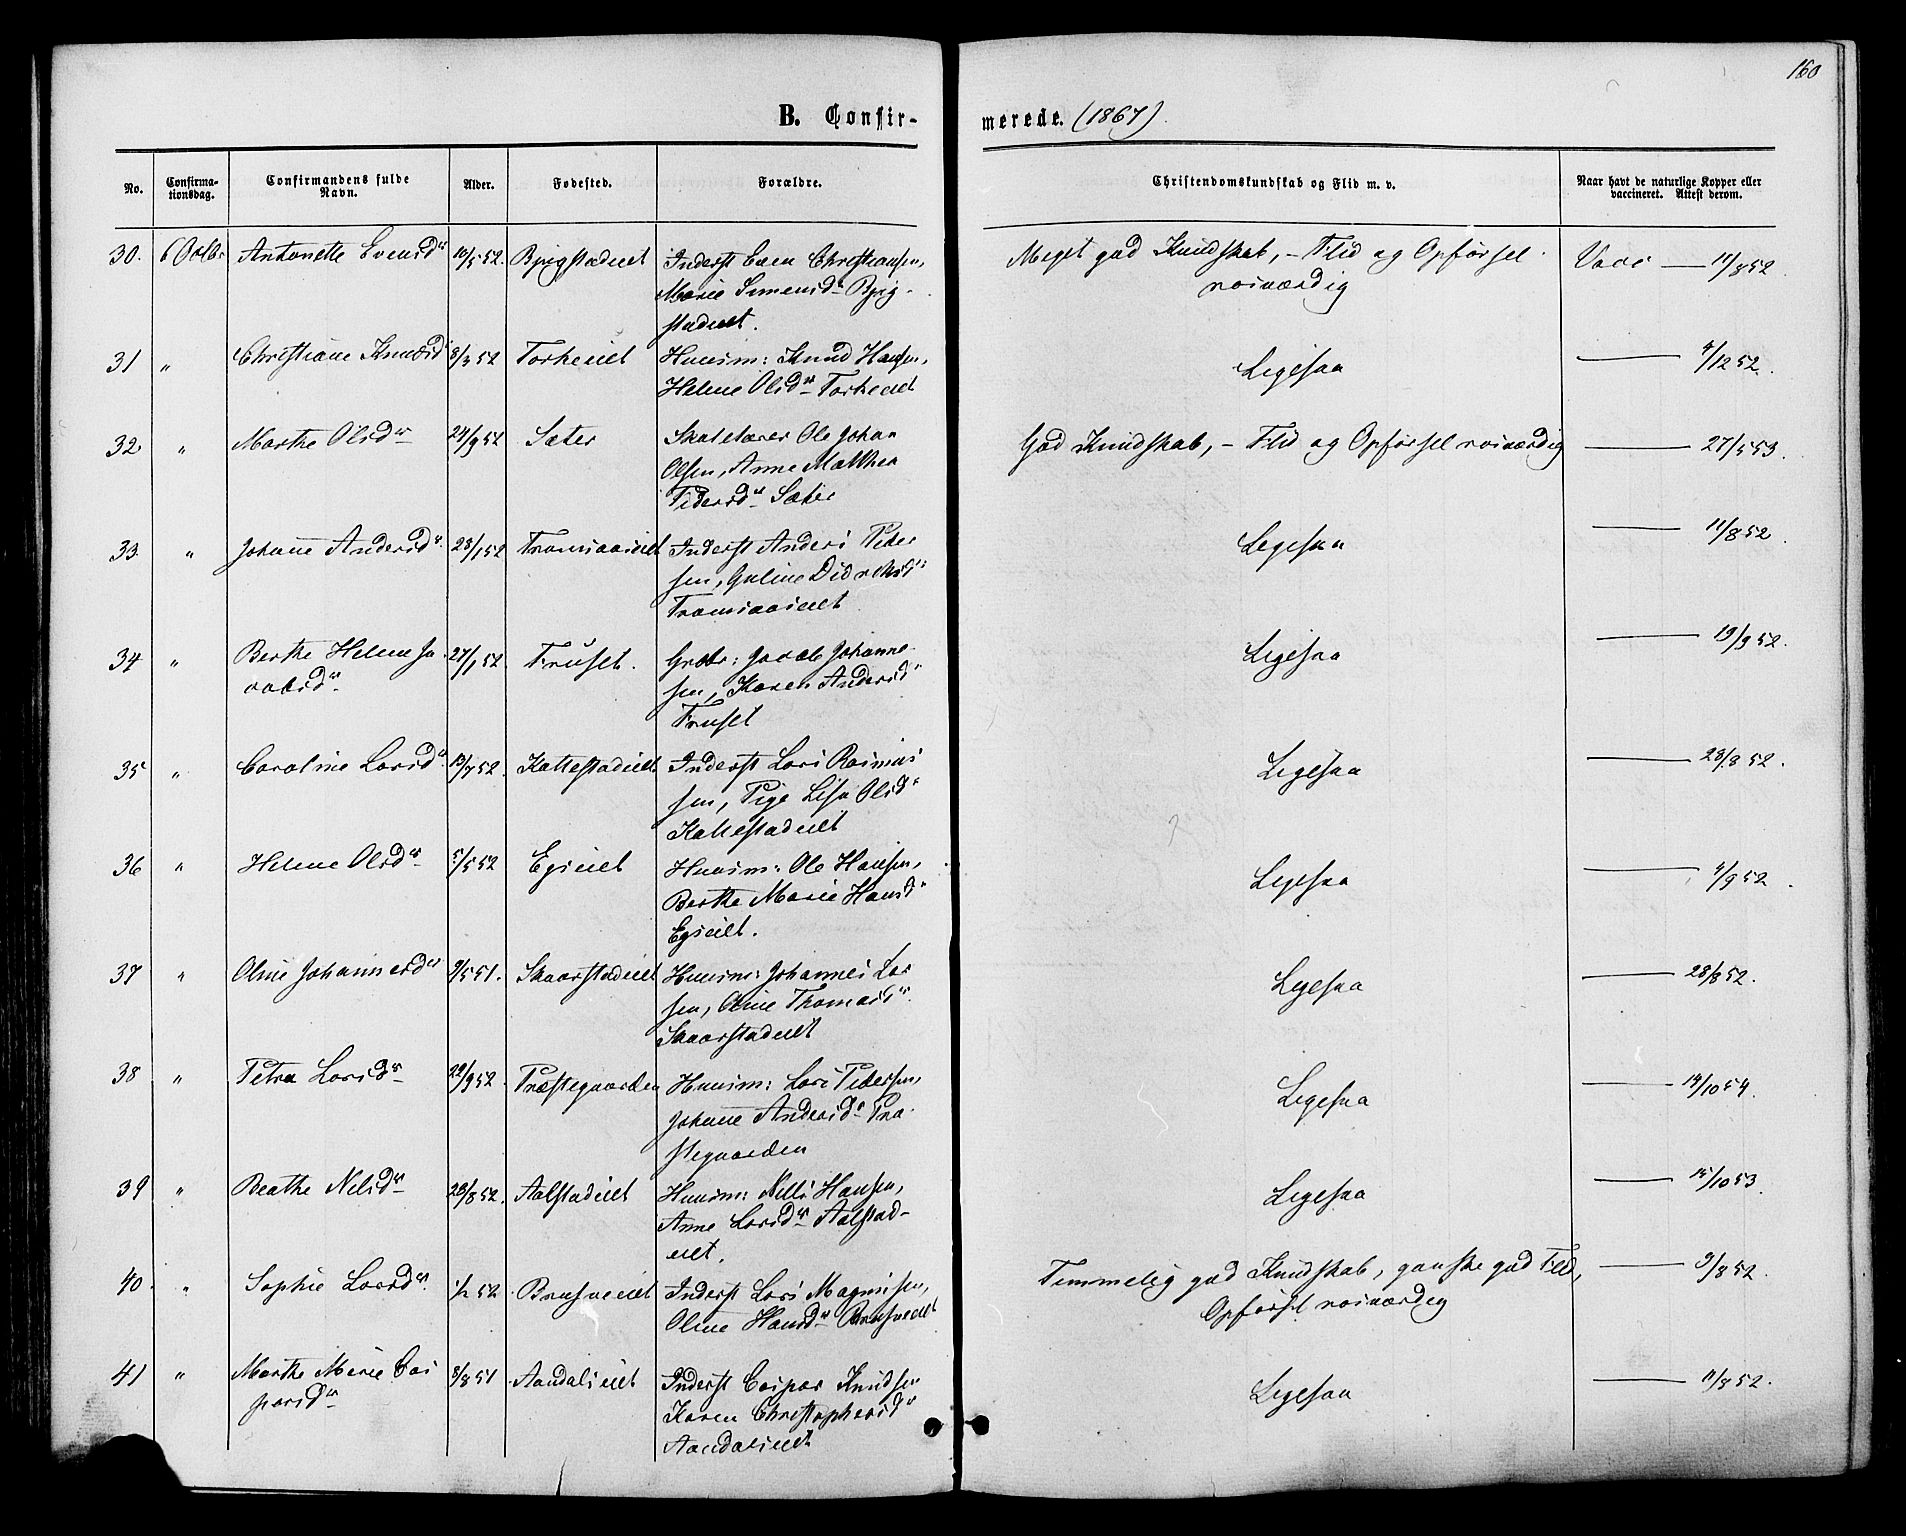 160
B. Confir-
merede. (1867).
No.
Confirma-
tionsdag.
Confirmandens fulde
Navn.
Alder.
Fødested.
Forældre.
Christendomskundskab og Flid m. v.
Naar havt de naturlige Kopper eller
vaccineret. Attest derom.
30. 6 Octbr Antonette Evensdr 10/5 52. Inderst Even Christiansen,
Marie Simensd.
Meget god Kundskab, - Flid og Opførsel
roisværdig
Vacc — 11/8 52.
31 " Christiane Knudsd 8/3 52 Torkeiet Huusm: Knud Hansen,
Helene Olsdr Torkeiet
Ligesaa — 4/12 52.
32 " Marthe Olsdr 24/9 52 Sæter Ole Johan
Olsen, Anne Mathea
Pedersdr Sæter
God Kundskab, - Flid og Opførsel roisværdig — 27/5 53.
33. " Johanne Andersdr. 23/1 52 Inderst Anders Peder
sen, Guline Didriksdr
Ligesaa — 11/8 52.
34 " Berthe Helene Ja
cobsdr 27/1 52. Fruset. Grbr: Jacob Johanne
sen, Karen Andersd
Fruset
Ligesaa — 19/9 52.
35 " Caroline Larsdr 13/7 52. Kattestadeiet Inderst Lars Rasmus
sen, Pige Lisa Olsdr
Kattestadeiet
Ligesaa — 28/8 52.
36 " Helene Olsdr 5/5 52 Egseiet Huusm: Ole Hansen,
Berthe Marie Hansd
Egseiet.
Ligesaa — 4/9 52.
37 " Oline Johannesdr 9/5 51. Skaarstadeiet Huusm: Johannes Lar
sen, Oline Thomasdr.
Skaarstadeiet
Ligesaa — 28/8 52.
38 " Petra Larsdr 22/9 52. Præstegaarden Huusm: Lars Pedersen,
Johanne Andersdr Præ
stegaarden
Ligesaa — 14/10 54.
39 " Beathe Nilsdr 28/8 52. Aalstadeiet Huusm: Nils Hansen,
Anne Larsdr Aalstad-
eiet.
Ligesaa — 15/10 53.
40. " Sophie Larsdr. 1/2 52 Brusveeiet Inderst Lars Magnusen,
Oline Hansdr Brusveeiet
Temmelig god Kundskab, ganske god Flid,
Opførsel roisværdig
— 9/8 52.
41 " Marthe Marie Cas
parsdr 8/8 51 Aandalseiet Inderst Caspar Knudsen
Karen Christophersdr
Aandalseiet
Ligesaa — 11/8 52.